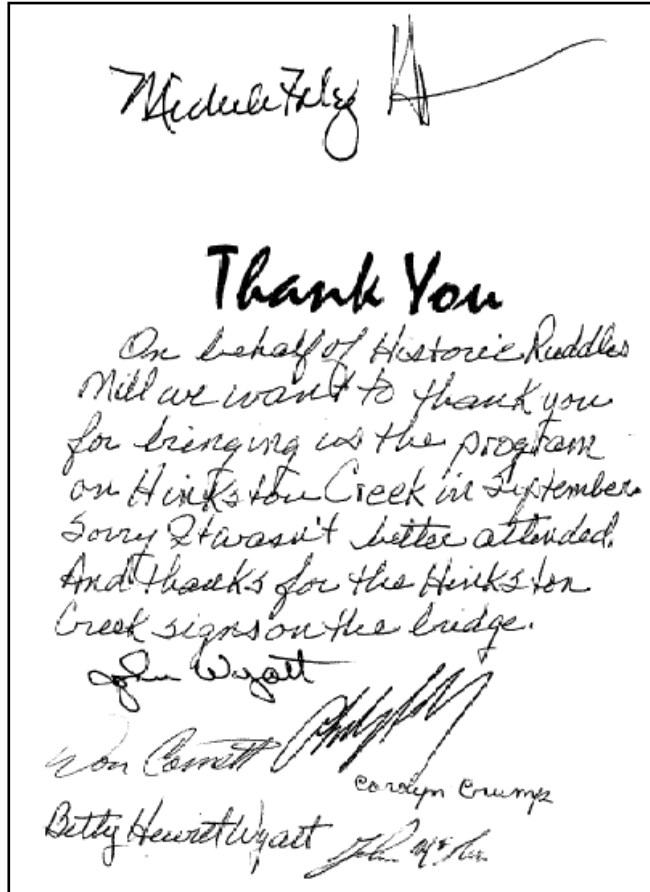 Thank You
On behalf of Historic Ruddles
Mill we want to thank you
for bringing us the program
on Hinkston Creek in September.
Sorry It wasn't better attended.
And thanks for the Hinkston
Creek signs on the bridge.
John Wyatt
Carolyn Crump
Betty Hewitt Wyatt
John